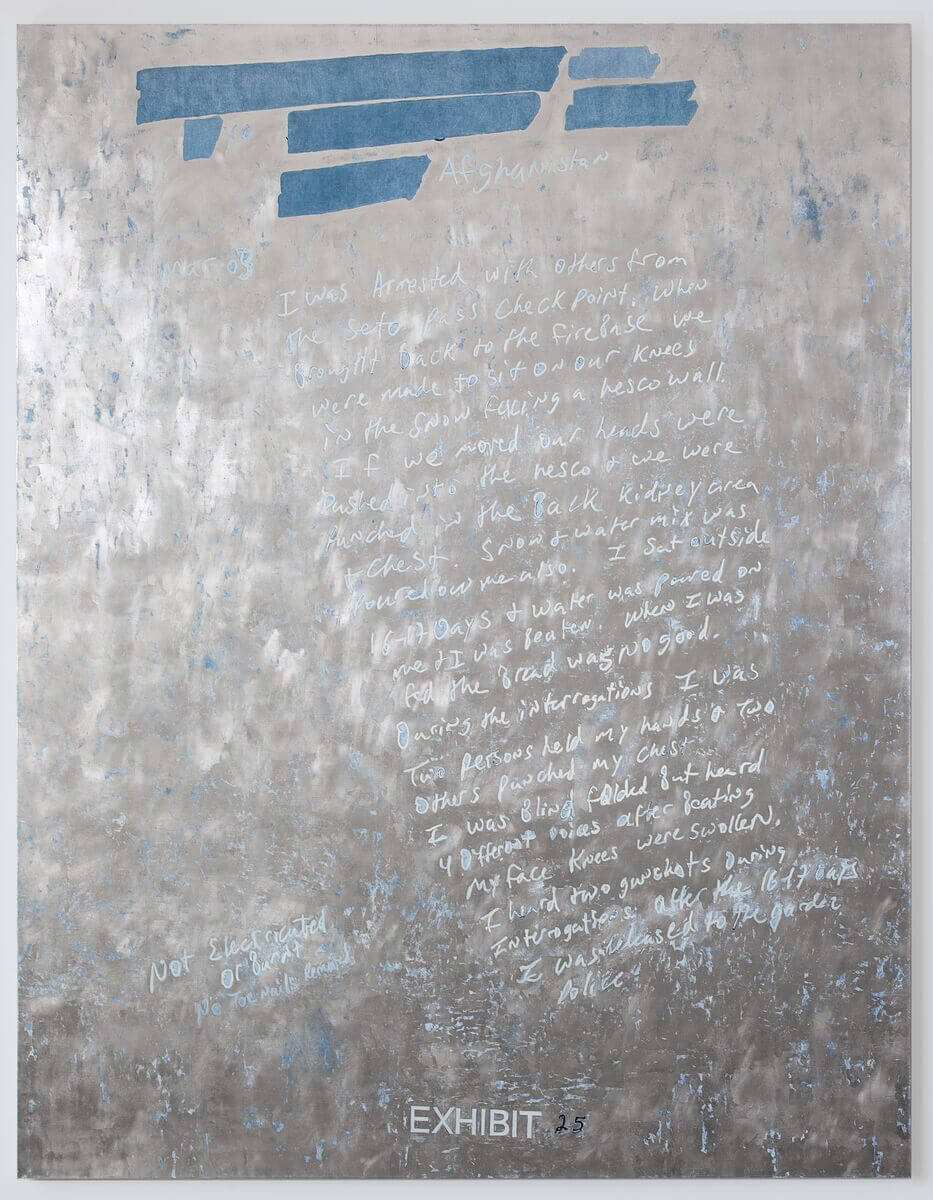 Afghanistan
Mar 03
I was Arrested with others from
the Sato pass CheckPoint. When
Brought Back to the FireBase we
were made to sit on our Knees
in the Snow facing a hescowall.
If we moved our heads were
Pushed into the hesco & we were
Punched in the Back Kidney area
& Chest. Snow & water mix was
Poured on me also. I Sat outside
16-17 Days & water was poured on
me & I was Beaten. When I was
fed the Bread was no good.
During the interrogations I was
Two Persons held my hands & Two
others Punched my Chest
I was Blind folded But heard
4 Different voices after Beating
My face Knees were swollen.
I heard two gunshots During
Interrogations. after the 16-17 Days
I was released to the gardez
Police.
Not Electricuted
Or Burnt
No Toe nails Removed
EXHIBIT 25